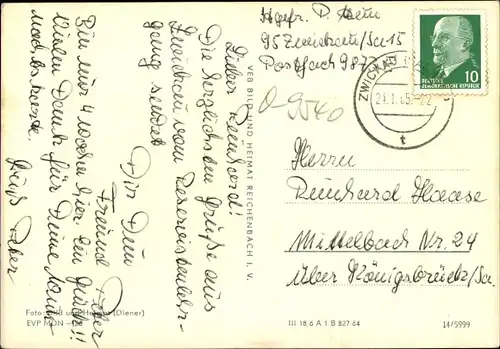 Hgefr. P.
95 Zwickau/Sa 15
Postfach 98
DEUTSCHE
DEMOKRATISCHE REPUBLIK
10
ZWICKAU
t
Lieber Reinhard!
Die herzlichsten Grüße aus
Zwickau vom Reservistenlehr-
gang sendet
Dir Dein
Freund
Peter
Bin nur 4 Wochen hier. Ein Glück!!
Vielen Dank für Deine
Gruß Peter
VEB BILD UND HEIMAT REICHENBACH I. V.
Herrn
Reinhard Haase
Mittelbach Nr. 24
über Königsbrück/Sa.
Foto: Bild und Heimat (Diener)
EVP MDN
III 18 6 A 1 B 827 64
14/5999